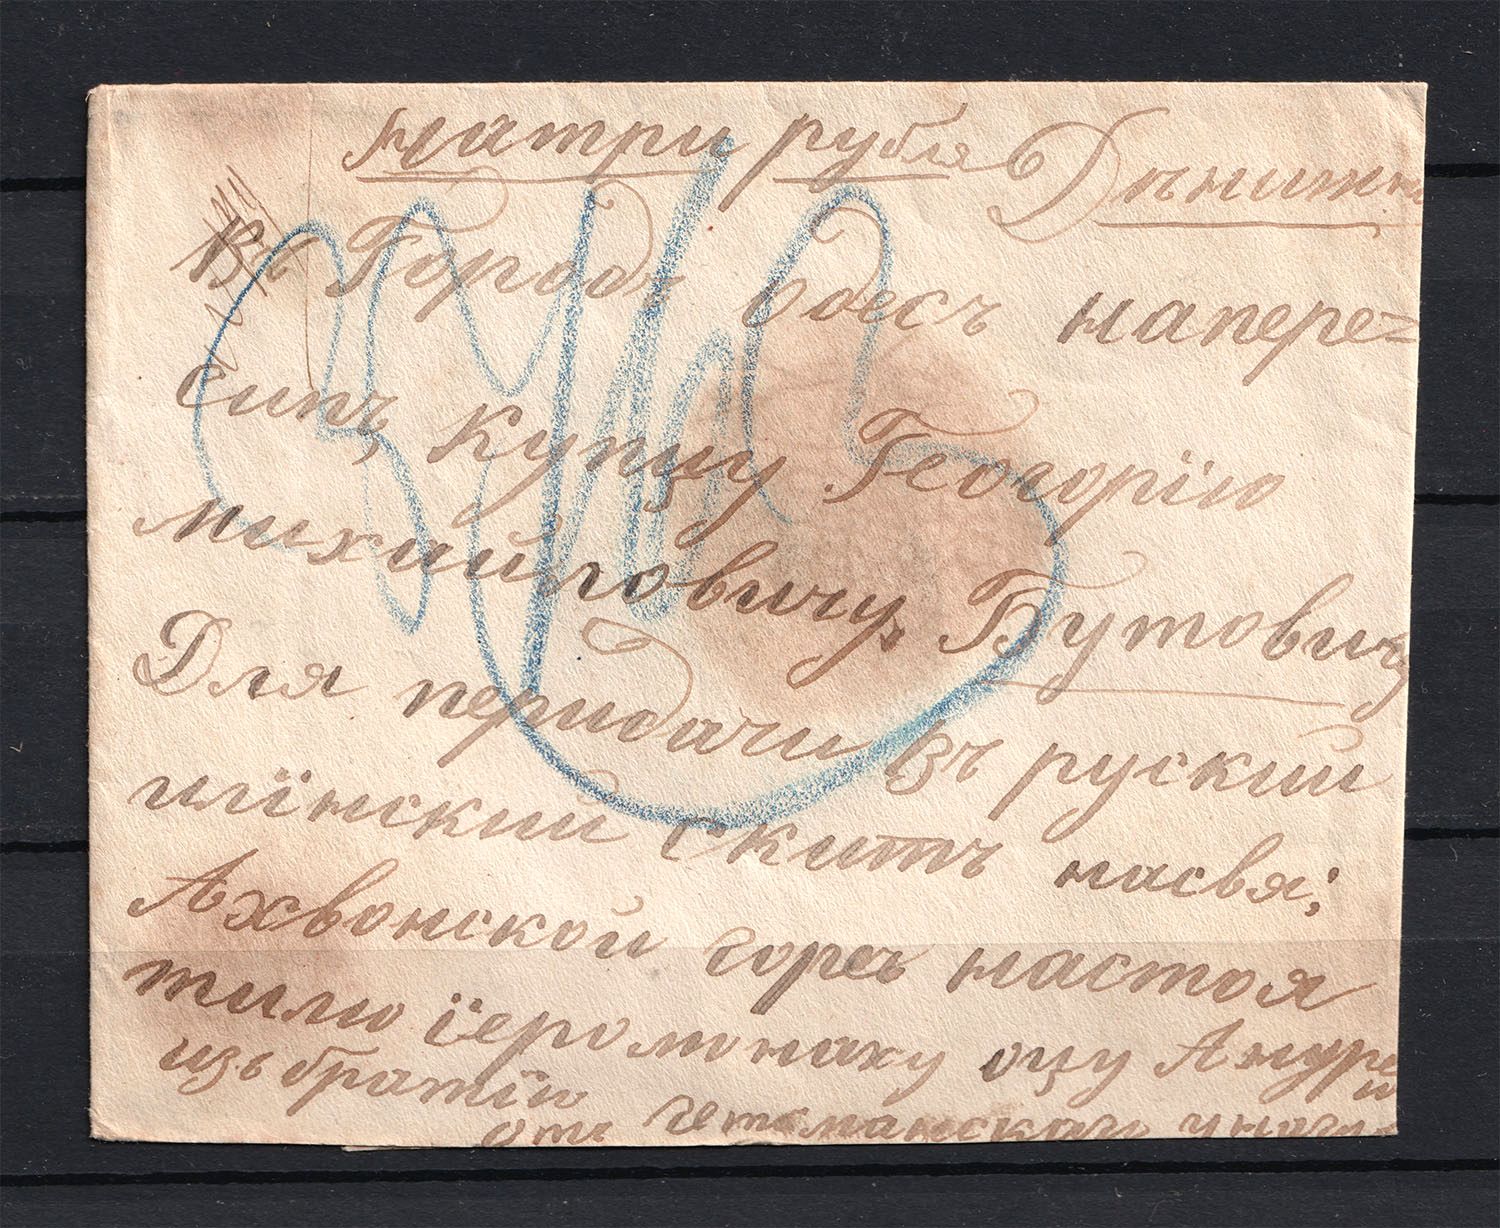 натри рубля Дѣнижн
Въ Городъ одесъ напере=
сипъ, купцу Геогорїю
михайловичу, Бутовичу
Для перидачи въ руский
илїнский скитъ насвя;
Ахвонской горѣ настоя
тилю їеромонаху оцу Андре
изъ братїю и
отъ гетсманскаго